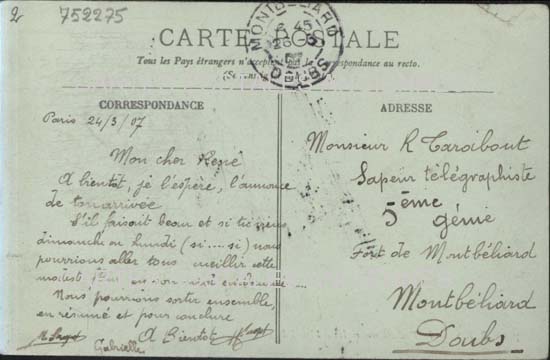 2 752275
MONTBELIARD
DOUBS
CARTE POSTALE
Tous les Pays étrangers n'acceptent pas la correspondance au recto.
CORRESPONDANCE
Paris 24/3/07
Mon cher René
A bientôt, je l'espère, l'annonce
de ton arrivée
S'il faisait beau et si tu viens
dimanche ou lundi (si.... si) nous
pourrions aller tous cueillir cette
Nous pourrions sortir ensemble,
en résumé et pour conclure
A Bientôt
Gabrielle
ADRESSE
Monsieur R Taroibout
Sapeur télégraphiste
5ème
génie
Fort de Montbéliard
Montbéliard
Doubs